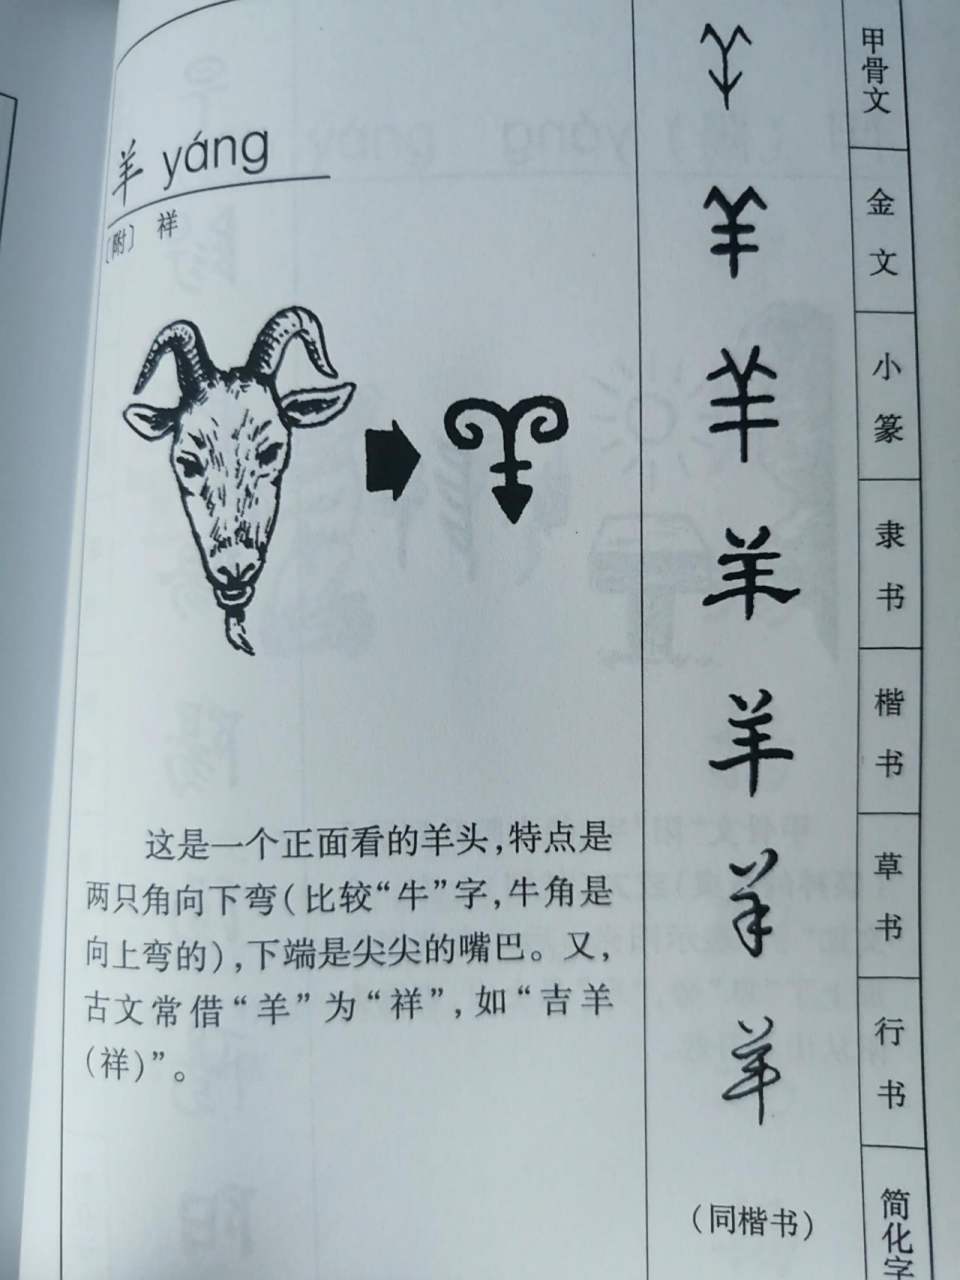 羊 yáng
〔附〕 祥
这是一个正面看的羊头，特点是
两只角向下弯（比较“牛”字，牛角是
向上弯的），下端是尖尖的嘴巴。又，
古文常借“羊”为“祥”，如“吉羊
（祥）”。
甲骨文
金文
小篆
羊 隶书
羊 楷书
羊 草书
羊 行书
（同楷书） 简化字